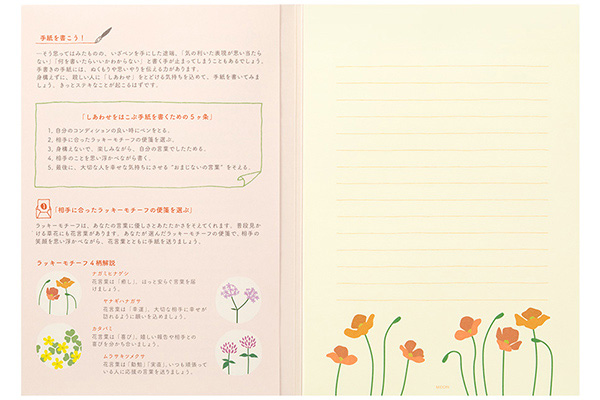 手紙を書こう！
―そう思ってはみたものの、いざペンを手にした途端、「気の利いた表現が思い当たら
ない」「何を書いたらいいかわからない」と書く手が止まってしまうこともあるでしょう。
手書きの手紙には、ぬくもりや思いやりを伝える力があります。
身構えずに、親しい人に「しあわせ」をとどける気持ちを込めて、手紙を書いてみま
しょう。きっとステキなことが起こるはずです。
「しあわせをはこぶ手紙を書くための５ヶ条」
1、自分のコンディションの良い時にペンをとる。
2、相手に合ったラッキーモチーフの便箋を選ぶ。
3、身構えないで、楽しみながら、自分の言葉でしたためる。
4、相手のことを思い浮かべながら書く。
5、最後に、大切な人を幸せな気持ちにさせる“おまじないの言葉”をそえる。
「相手に合ったラッキーモチーフの便箋を選ぶ」
ラッキーモチーフは、あなたの言葉に優しさとあたたかさをそえてくれます。普段見か
ける草花にも花言葉があります。あなたが選んだラッキーモチーフの便箋で、相手の
笑顔を思い浮かべながら、花言葉とともに手紙を送りましょう。
ラッキーモチーフ４柄解説
ナガミヒナゲシ
花言葉は「癒し」。ほっと安らぐ言葉を届
けましょう。
ヤナギハナガサ
花言葉は「幸運」。大切な相手に幸せが
訪れるように願いを込めましょう。
カタバミ
花言葉は「喜び」。嬉しい報告や相手との
喜びを分かち合いましょう。
ムラサキツメクサ
花言葉は「勤勉」「実直」。いつも頑張って
いる人に応援の言葉を送りましょう。